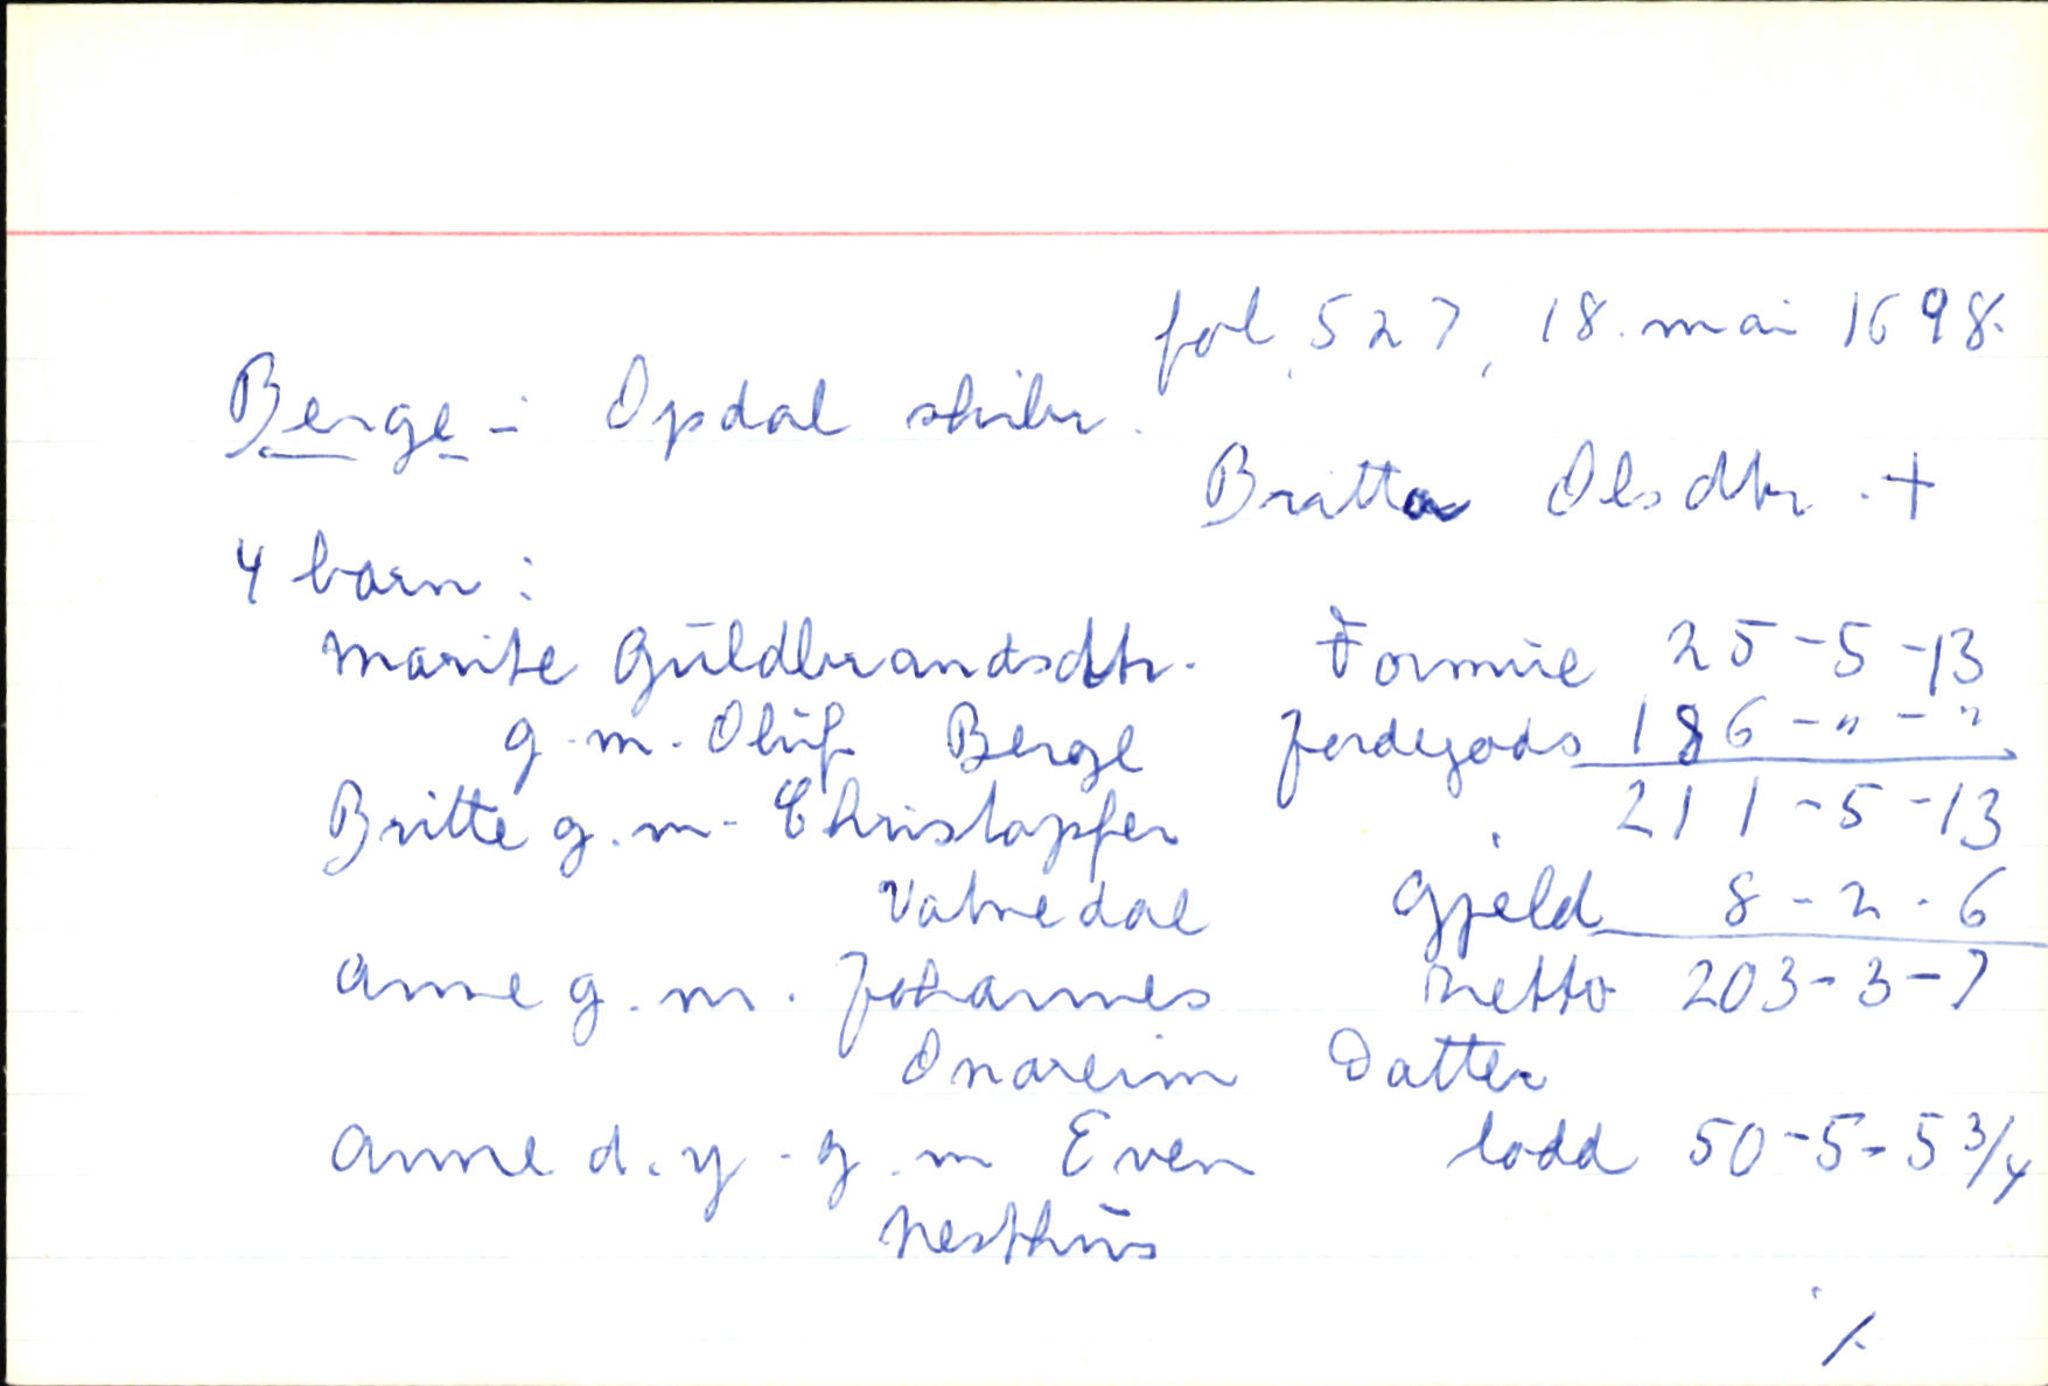 fol. 527, 18. mai 1698.
Berge - Opdal skibr.
Britta Olsdtr. +
4 barn:
Marite Gŭldbrandsdtr. Formŭe 25-5-13
g.m. Olŭf Berge Jordegods 186-"-"
Britte g.m. Christopfer 211-5-13
Vatnedal Gjeld 8-2-6
Anne g.m. Johannes Netto 203-3-7
Onareim Datter
Anne d.y. g.m Even lodd 50-5-5 3/4
Nesthŭs
/.